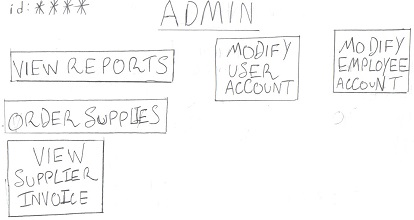 id:****
ADMIN
VIEW REPORTS
MODIFY
USER
ACCOUNT
MODIFY
EMPLOYEE
ACCOUNT
ORDER SUPPLIES
VIEW
SUPPLIER
INVOICE